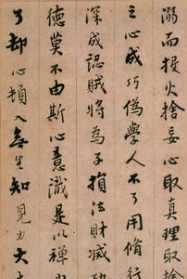 溺而投火捨妄心取真理取
之心成巧偽學人不了用脩行
深成認賊將為子損法財滅功
德莫不由斯心意識是以禪
了却心頓入無生知見力大